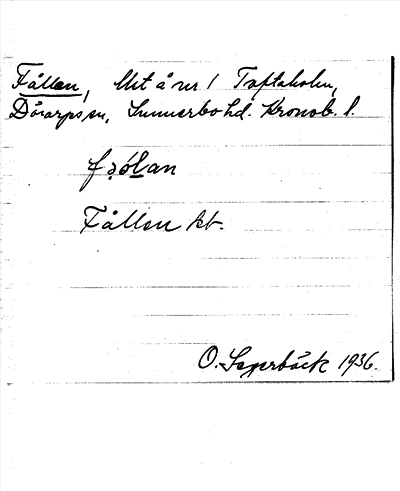 Fållen, litet åner / Toftaholm,
Dörarps sn, Sunnerbo hd. Kronob. l.
fǝólan
Fållen kb.
O. Sagerbäck 1936.